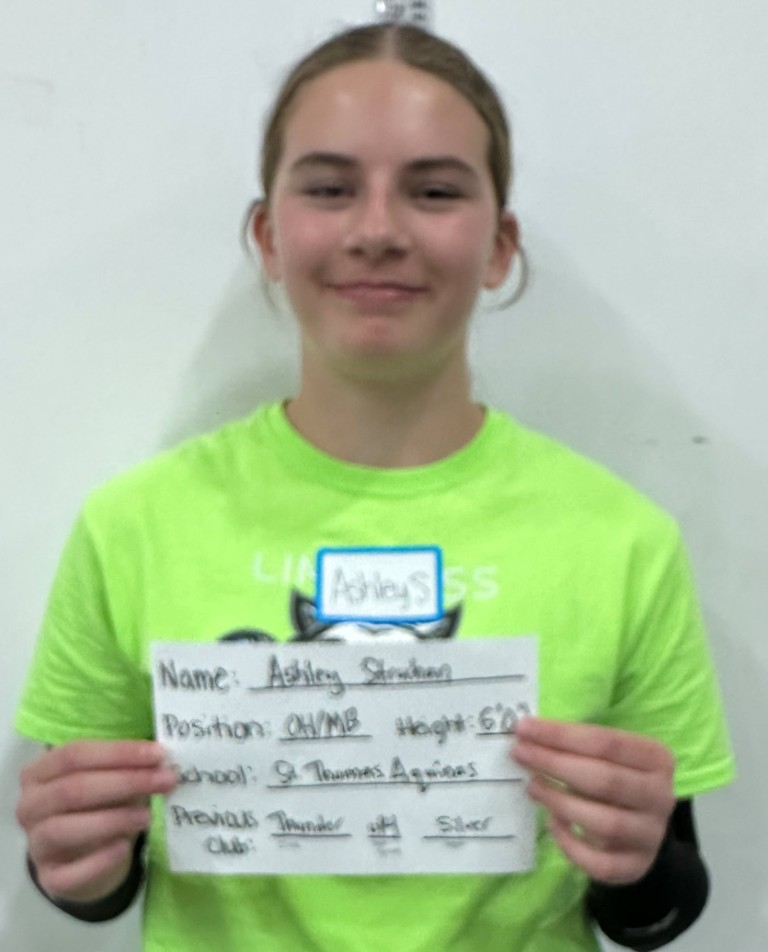 Ashley S
Name: Ashley
Position: OH/MB Height: 6'0"
School: St. Thomas Aquinas
Previous Thunder Silver
Club: